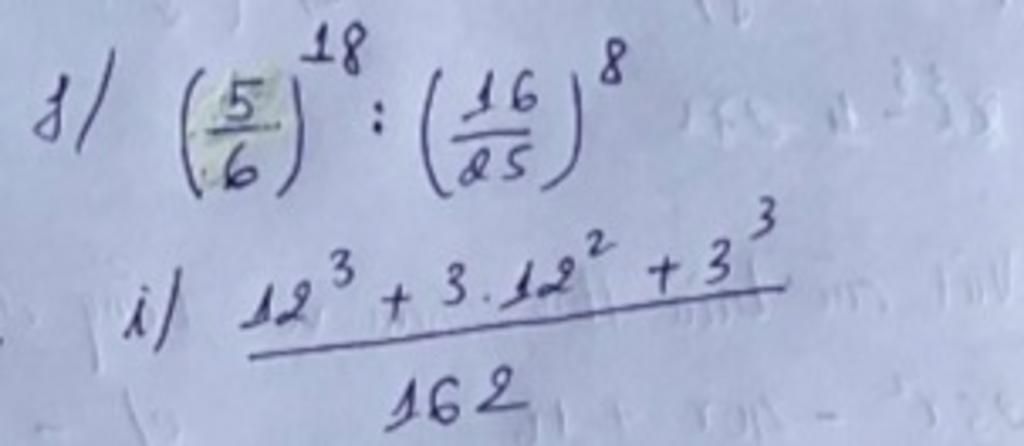 f/ (5/6)^18 : (16/25)^8
i/ (12^3 + 3.12^2 + 3^3)/162